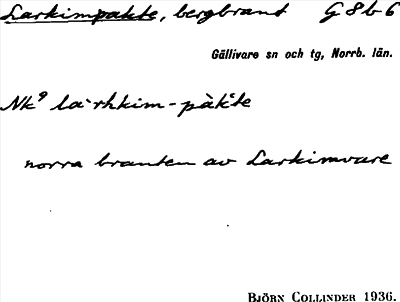 Larkimpakte, bergbrant G8b6
Gällivare sn och tg, Norrb. län.
Nk⁹ la·rhkim-pàk̀te
norra branten av Larkimvare
BJÖRN COLLINDER 1936.